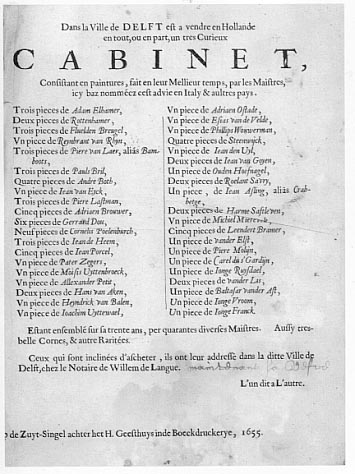 Dans la Ville de DELFT est a vendre en Hollande
en tout, ou en part, un tres Curieux
CABINET,
Consistant en paintures, fait en leur Mellieur temps, par les Maistres,
icy baz nomméez est advie en Italy & aultres pays.
Trois pieces de Adam Elshamer,
Deux pieces de Rottenhamer,
Trois pieces de Fluelden Breugel,
Vn piece de Reynbrant van Rhyn,
Trois pieces de Pieter van Laer, aliàs Bam-
boots,
Trois pieces de Pauls Bril,
Quatre pieces de Andre Both,
Vn piece de Ian van Eyck,
Trois pieces de Pieter Lastman,
Cincq pieces de Adriaen Brouwer,
Six pieces de Gerrard Dou,
Neuf pieces de Cornelis Poelenburch,
Trois pieces de Ian de Heem,
Cincq pieces de Ian Porcel,
Vn piece de Pater Zegers,
Vn piece de Moisis Uyttenbroeck,
Vn piece de Allexander Petit,
Deux pieces de Hans van Aken,
Vn piece de Heyndrick van Balen,
Vn piece de Ioachim Uyttewael,
Vn piece de Adriaen Ostade,
Vn piece de Esias van de Velde,
Vn piece de Phillips Wouwerman,
Quatre pieces de Steenwijck,
Vn piece de Ian den Uyl,
Deux pieces de Ian van Goyen,
Vn piece de Ouden Hoefnagel,
Deux pieces de Roelant Savry,
Vn piece, de Ian Asling, aliàs Crab-
betge,
Deux pieces de Harme Saftleven,
Vn piece de Michiel Mierevelt,
Cincq pieces de Leendert Bramer,
Un piece de vander Elst,
Un piece de Piere Molijn,
Un piece de Carel du Gardijn,
Un piece de Ionge Ruysdael,
Deux pieces de vander Las,
Un piece de Baltasar vander Ast,
Un piece de Ionge Vroom,
Un piece de Ionge Franck.
Estant ensemble sur sa trente ans, per quarantes diverses Maistres. Aussy tres-
belle Cornes, & autre Raritées.
Ceux qui sont inclinées d'ascheter, ils ont leur addresse dans la ditte Ville de
Delft, chez le Notaire de Willem de Langue.
L'un dit a L'autre.
de Zuyt-Singel achter het H. Geesthuys inde Boeckdruckerye, 1655.